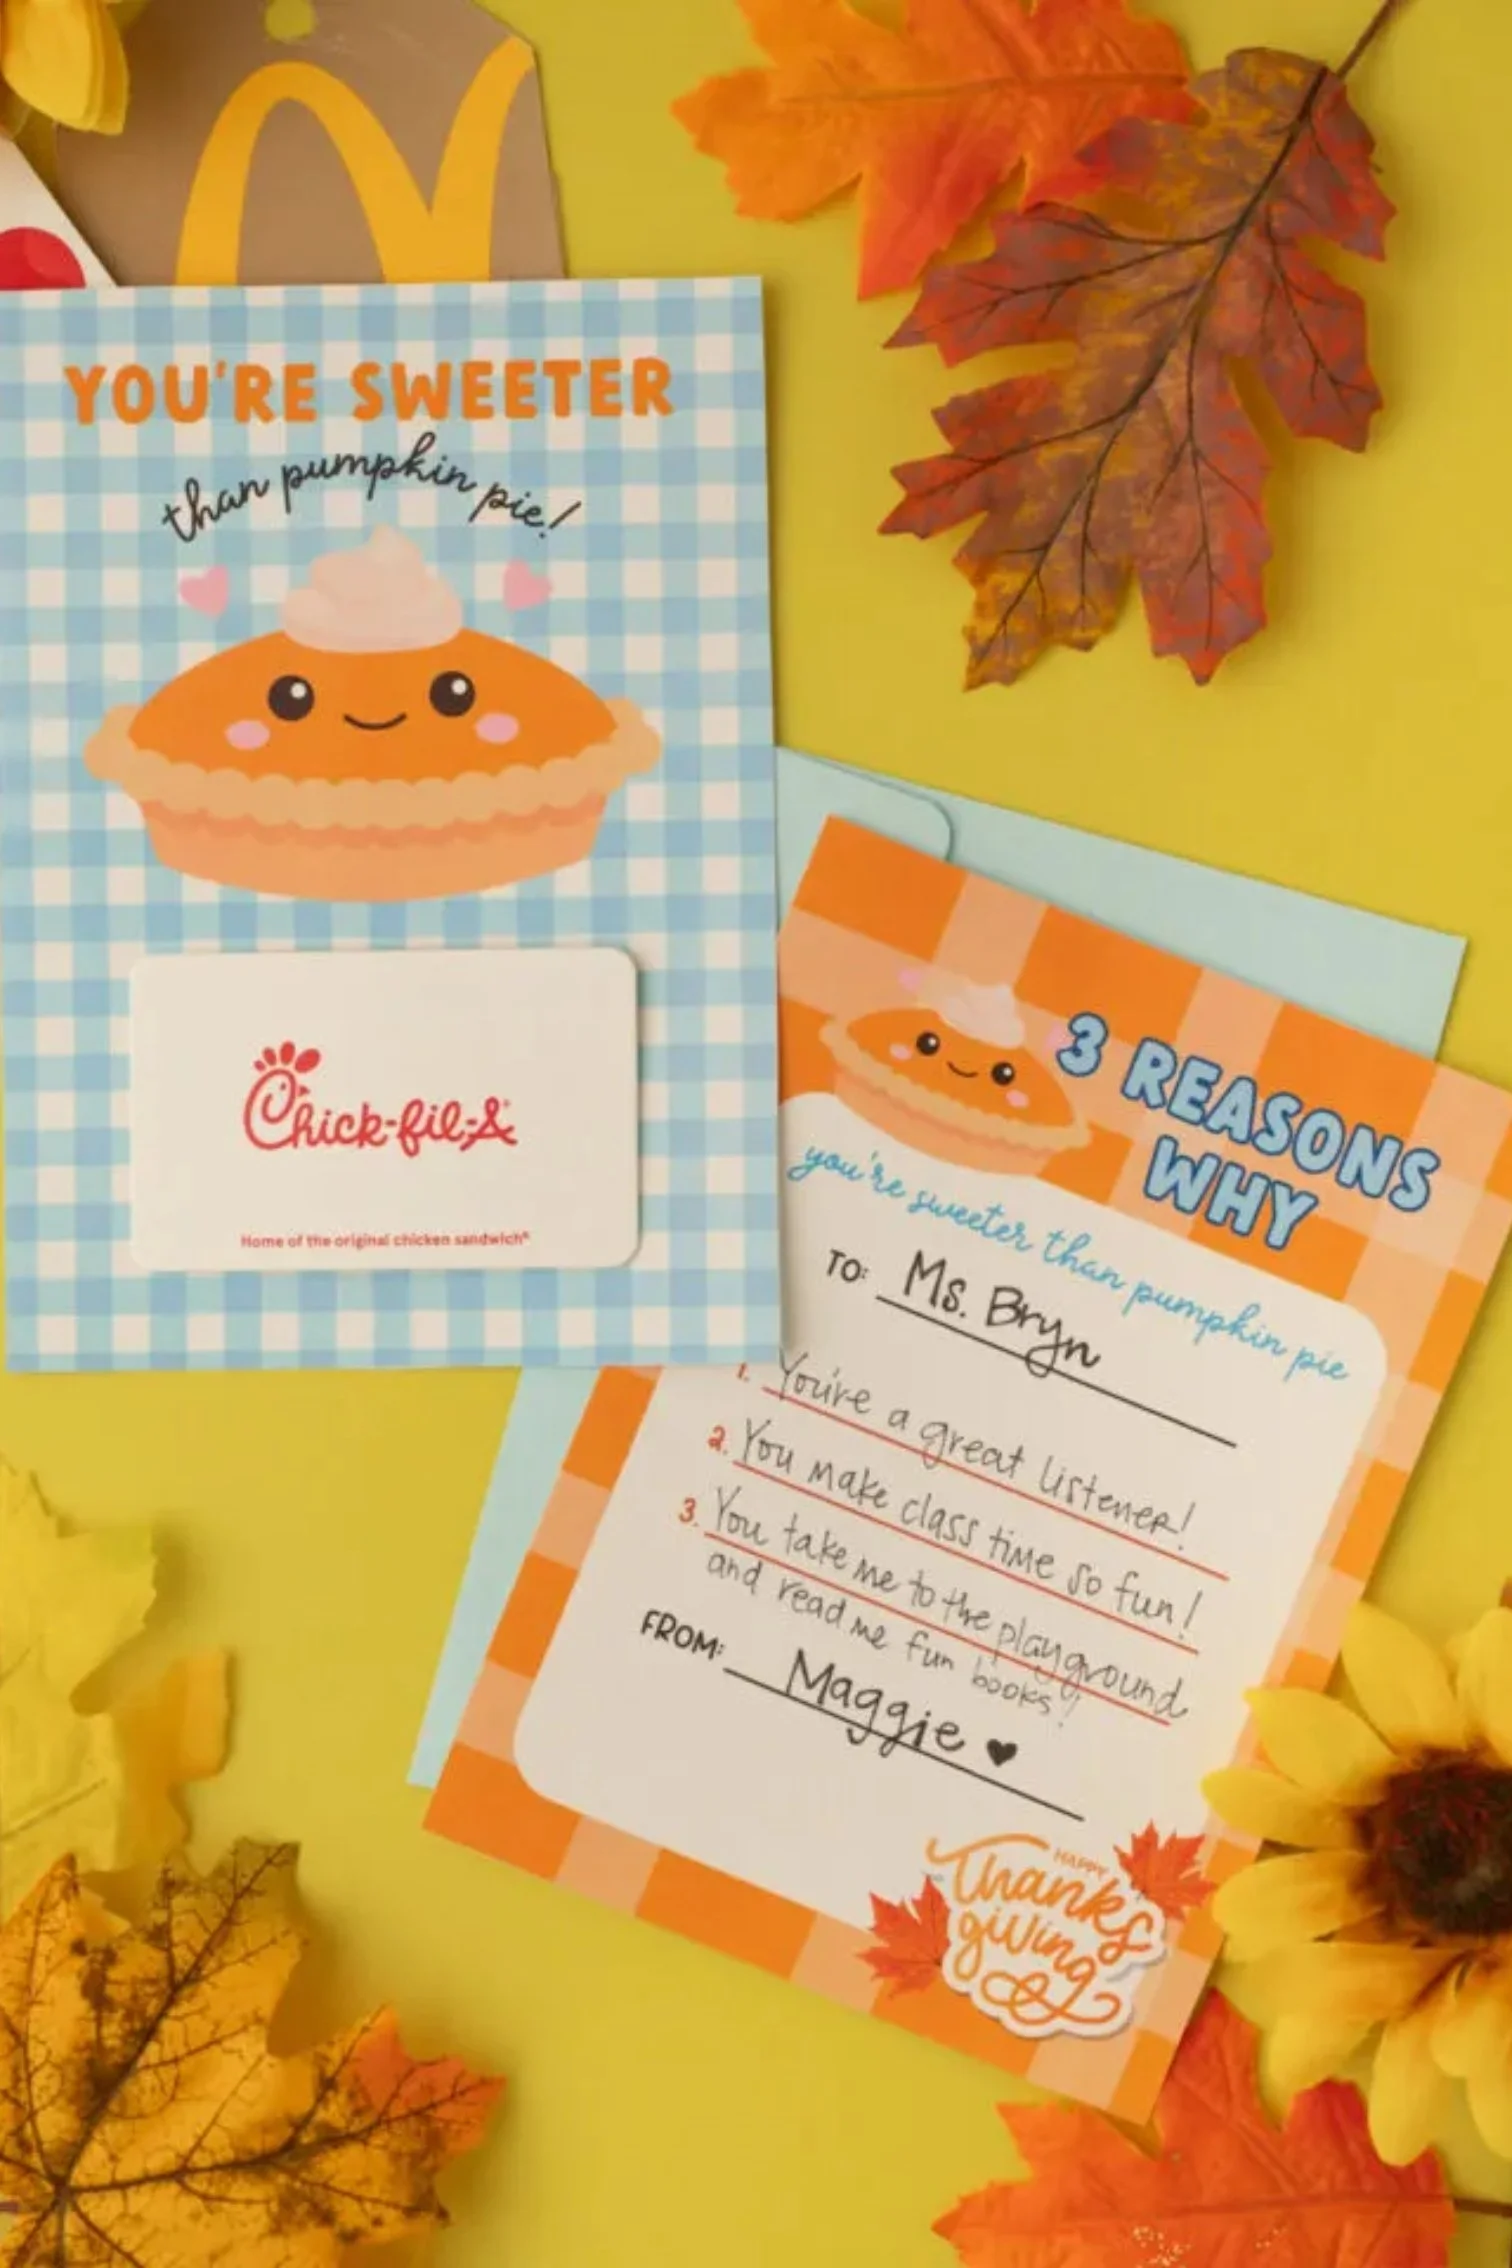 YOU'RE SWEETER
than pumpkin pie!
Chick-fil-A®
Home of the original chicken sandwich®
3 REASONS
WHY
you're sweeter than pumpkin pie
TO: Ms. Bryn
1. You're a great listener!
2. You make class time so fun!
3. You take me to the playground
and read me fun books!
FROM: Maggie ♥
HAPPY
thanks
giving